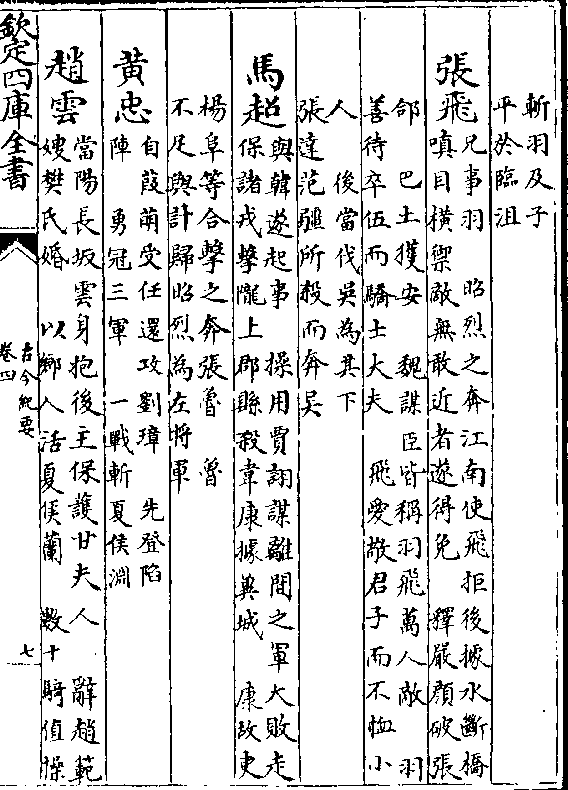 斬羽及子
平於臨沮
張飛
兄事羽　昭烈之奔江南使飛拒後據水斷橋
嗔目橫禦敵無敢近者遂得免　釋嚴顔破張
郃　巴土獲安　魏謀臣皆稱羽飛萬人敵　羽
善待卒伍而驕士大夫　飛愛敬君子而不恤小
人　後當伐吳為其下
張達范彊所殺而奔吳
馬超
與韓遂起事　操用賈詡謀離間之軍大敗走
保諸戎擊隴上郡縣殺韋康據兾城　康故吏
楊阜等合擊之奔張魯　魯
不足與計歸昭烈為左將軍
黃忠
自葭萌受任還攻劉璋　先登陷
陣　勇冠三軍　一戰斬夏侯淵
趙雲
當陽長坂雲身抱後主保護甘夫人　辭趙範
嫂樊氏婚　以鄉人活夏侯蘭　數十騎值操
欽定四庫全書
古今紀要
卷四
七